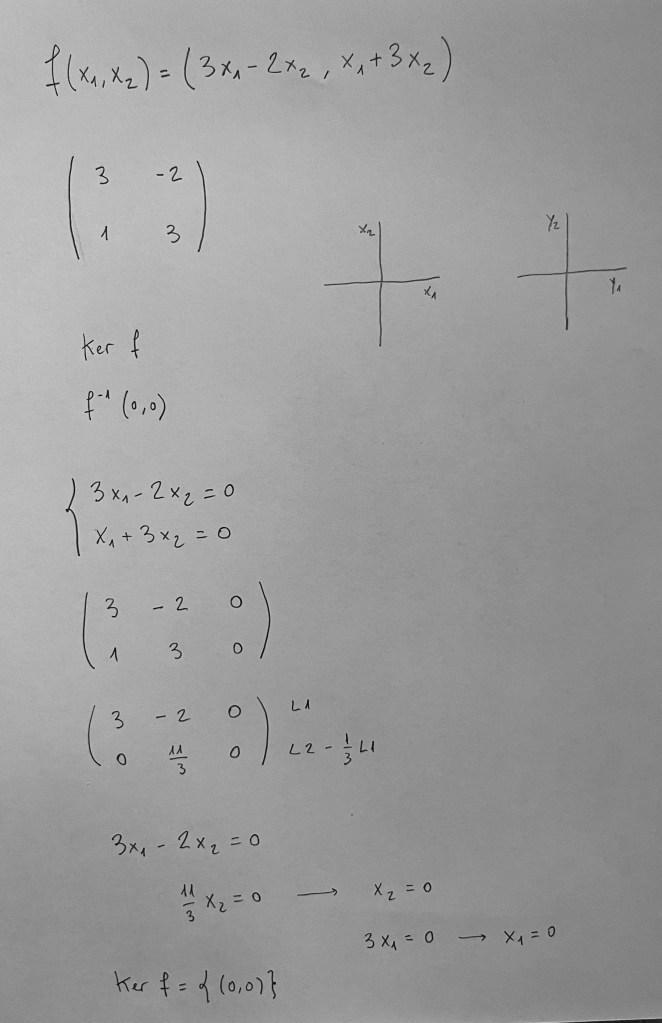 f(x₁,x₂) = (3x₁ - 2x₂ , x₁ + 3x₂)
( 3 -2 )
( 1 3 )
x₂
x₁
y₂
y₁
Ker f
f⁻¹ (0,0)
{ 3x₁ - 2x₂ = 0
x₁ + 3x₂ = 0
( 3 -2 0 )
( 1 3 0 )
( 3 -2 0 ) L1
( 0 11/3 0 ) L2 - 1/3 L1
3x₁ - 2x₂ = 0
11/3 x₂ = 0 → x₂ = 0
3x₁ = 0 → x₁ = 0
Ker f = { (0,0) }